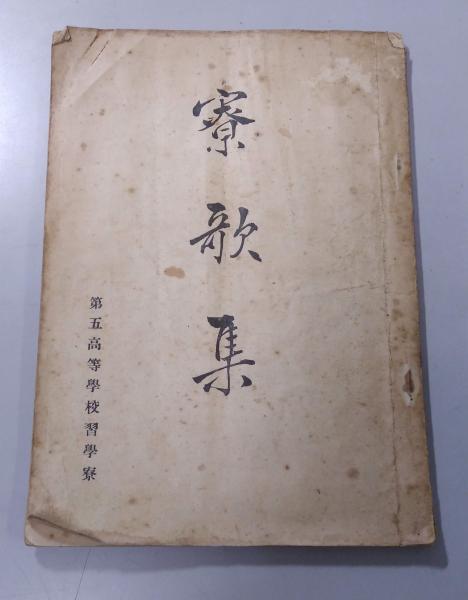 寮歌集
第五高等學校習學寮